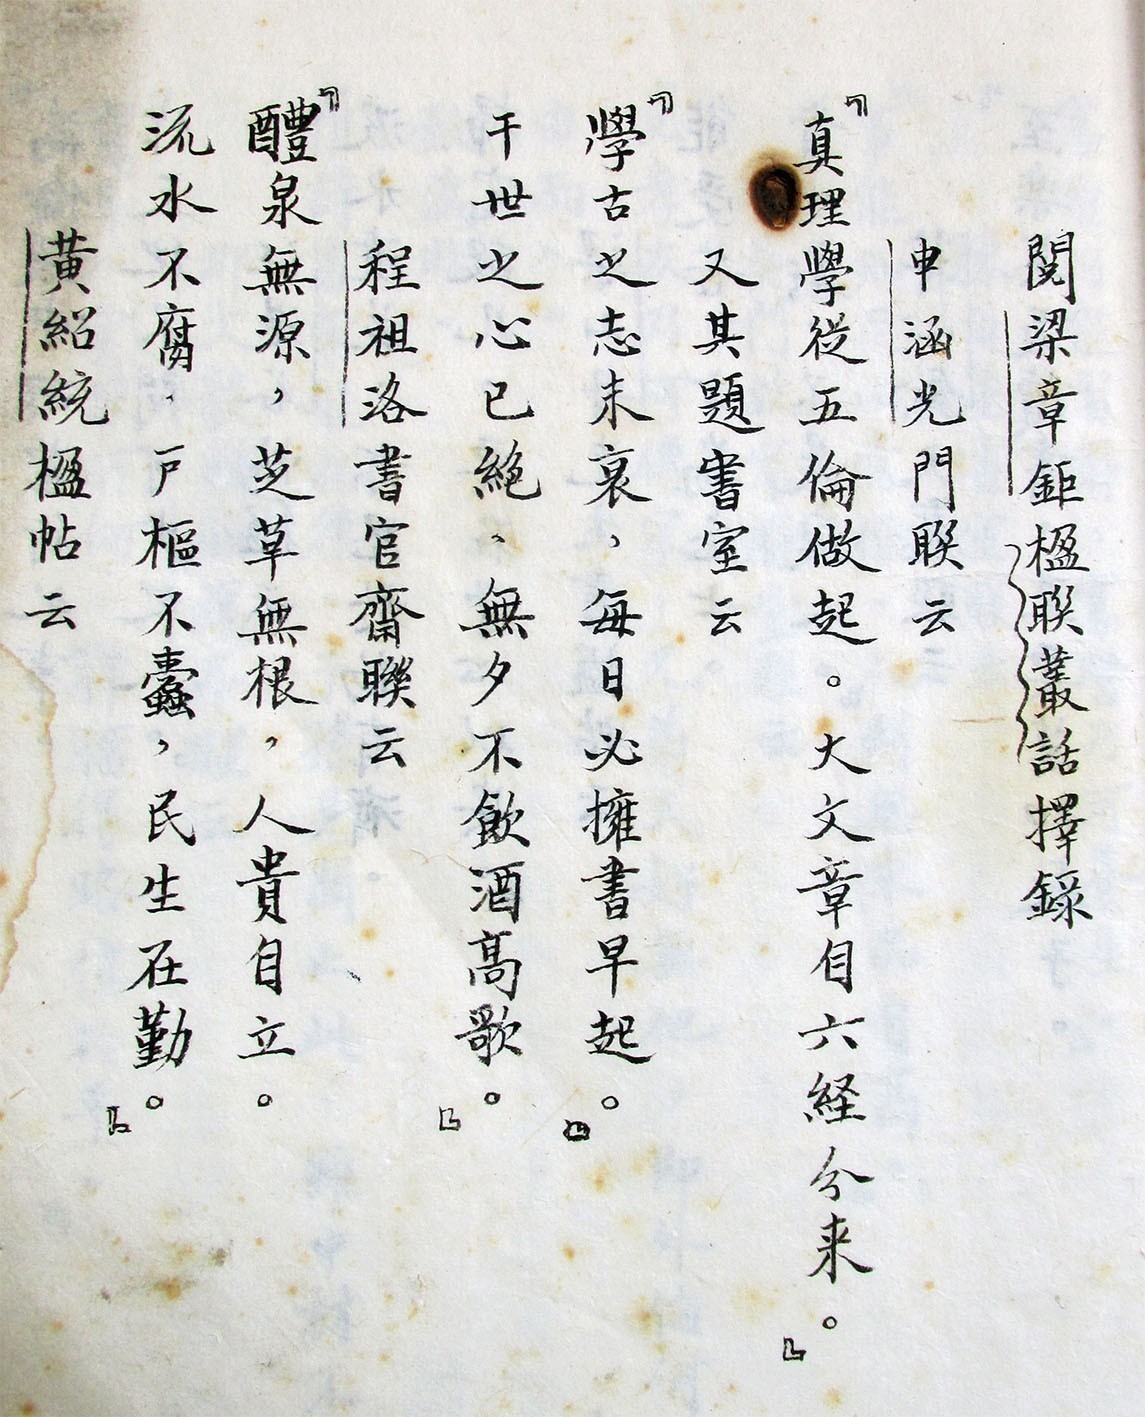 閱梁章鉅楹聯叢話擇録
申涵光門联云
『真理學從五倫做起。大文章自六経分来。』
又其題書室云
『學古之志未衰,每日必擁書早起。
干世之心已絶、無夕不飲酒高歌。』
程祖洛書官齋聯云
『醴泉無源,芝草無根,人貴自立。
流水不腐、戶樞不蠹,民生在勤。』
黃紹統楹帖云